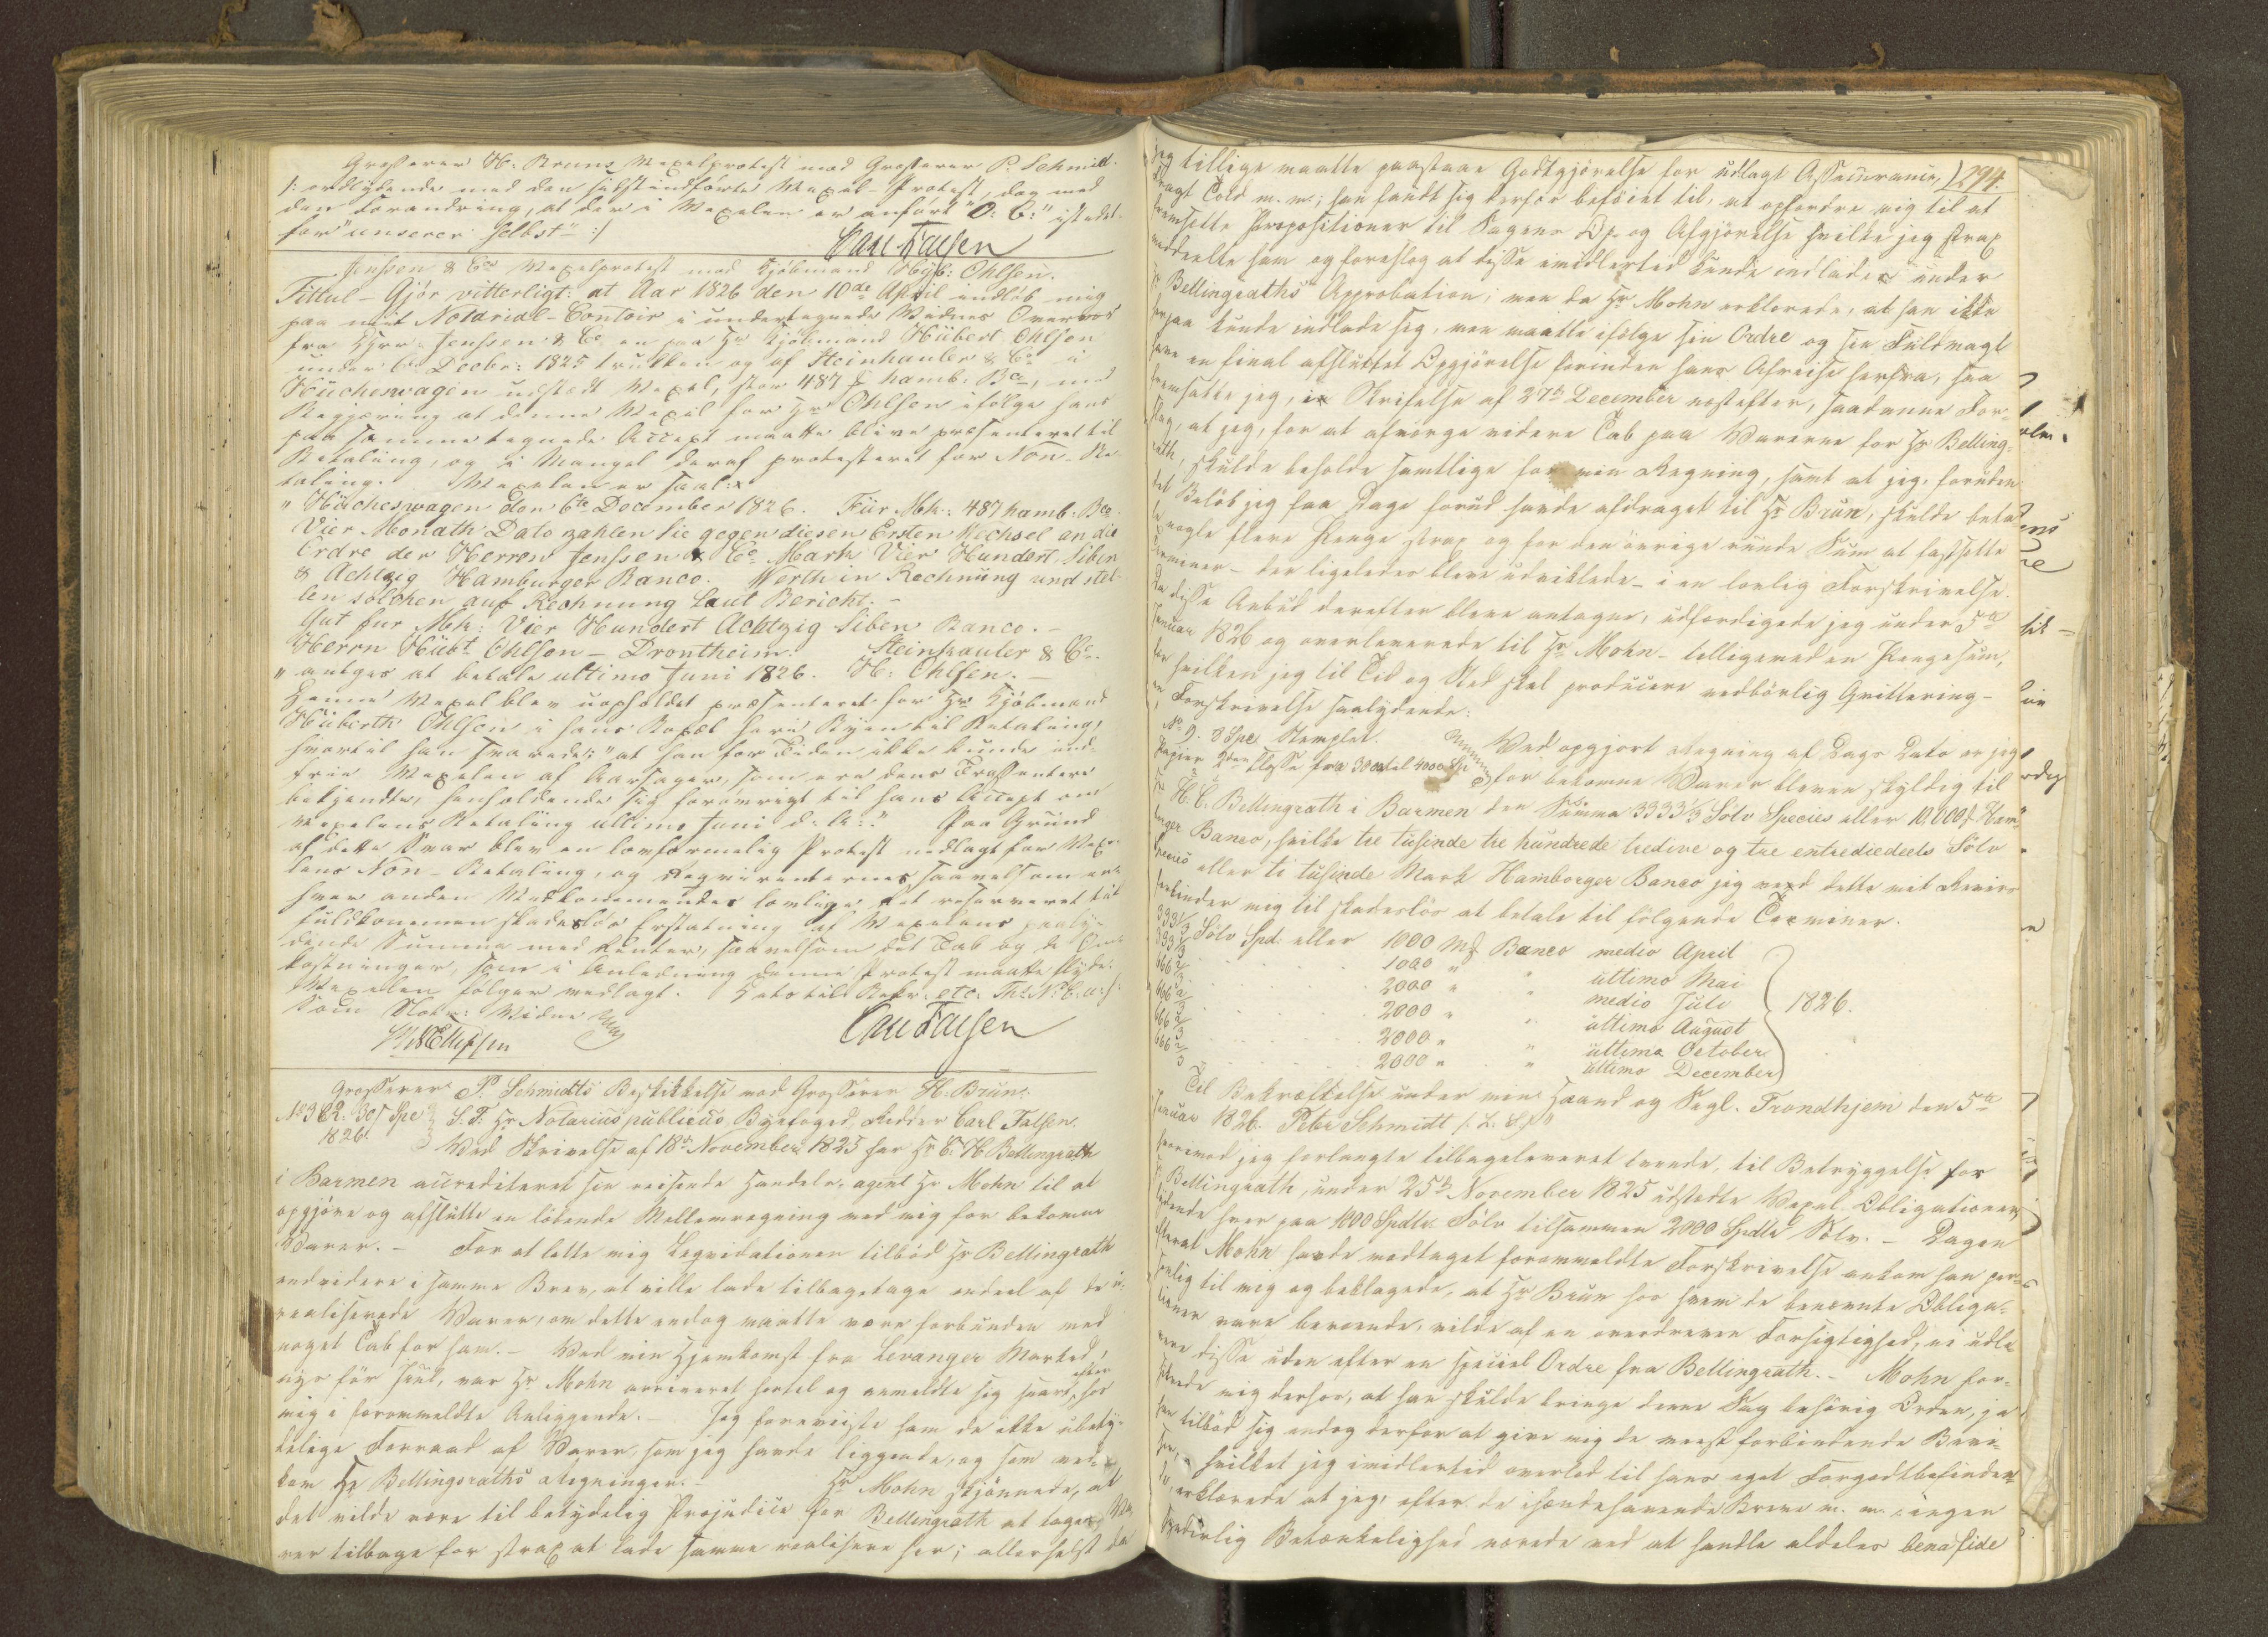 Grosserer H. Bruns Vexelprotest mod Grosserer P. Schmidt.
/: ordlydende med den sidstindførte Vexel-Protest, dog med
den Forandring, at der i Vexelen er anført "O: C:" istedet
for "unserer selbst" :/
Carl Falsen
Jenssen & Co Vexelprotest mod Kjøbmand Hüb: Ohlsen.
Tittul - Gjør vitterligt: at Aar 1826 den 10de April indløb mig
paa mit Notarial-Contoir i undertegnede Vidnes Overvær
fra Hrr. Jenssen & Co en paa Hr Kjøbmand Hübert Ohlsen
under 6te Decbr: 1825 trukken og af Steinhauler & Co i
Hückeswagen udstedt Vexel, stor 487 hamb. Bco, med
Begjæring at denne Vexel for Hr Ohlsen ifølge hans
paa samme tegnede Accept maatte blive præsenteret til
Betaling, og i Mangel deraf protesteret for Non-Be-
taling. Vexelen er saal:
"Hückeswagen den 6te December 1826. Für Mk: 487 hamb: Bco.
Vier Monath Dato zahlen Sie gegen diesen Ersten Wechsel an die
Ordre der Herren Jenssen & Co Mark Vier Hundert Siben
& Achtzig Hamburger Banco. Werth in Rechnung und stel-
len solchen auf Rechnung Laut Bericht. -
Gut für Mk: Vier Hundert Achtzig Siben Banco. -
Herrn Hübt Ohlsen - Drontheim. Steinhauler & Co.
" antges at betale ultimo Juni 1826. H: Ohlsen. -
Denne Vexel blev uopholdet præsenteret for Hr Kjøbmand
Hüberth Ohlsen i hans Bopæl her i Byen til Betaling,
hvortil han svarede: "at han for Tiden ikke kunde ind-
frie Vexelen af Aarsager, som ere dens Trassentere
bekjendte, henholdende sig forøvrigt til hans Accept om
Vexelens Betaling ultimo Juni d: A:" Paa Grund
af dette Svar blev en lovformelig Protest nedlagt for Vexe-
lens Non-Betaling, og Reqvirenternes saavelsom en-
hver anden Vedkommendes lovlige Ret reserveret til
fuldkommen skadesløs Erstatning af Vexelens paaly-
dende Summa med Renter, saavelsom det Tab og de Om-
kostninger, som i Anledning denne Protest maatte flyde.
Vexelen følger vedlagt. Dets til Bekr: etc: Ths N: C: u: s:
Som Notr: Vidne
Carl Falsen
Grosserer P. Schmidts Beskikkelse mod Grosserer H. Brun.
No 382. 30 Spe S. T. Hr Notarius publicus, Byefoged, Ridder Carl Falsen.
1826.
Ved Skrivelse af 18de November 1825 har Hr C. H. Bellingrath
i Barmen accrediteret sin reisende Handels-agent Hr Mohn til at
opgjøre og afslutte en løbende Mellemregning med mig for bekomne
Varer. - For at lette mig Leqvidationen tilbød Hr Bellingrath
endvidere i samme Brev, at ville lade tilbagetage endeel af de u-
realiserede Varer, om dette endog maatte være forbunden med
noget Tab for ham. - Ved min Hjemkomst fra Levanger Marked,
nys før Juul, var Hr Mohn arriveret hertil og anmeldte sig snart efter hos
mig i forommeldte Anliggende. - Jeg foreviiste ham de ikke ubety-
delige Forraad af Varer, som jeg havde liggende, og som ved-
kom Hr Bellingsraths Regninger. - Hr Mohn skjønnede, at
det vilde være til betydelig Præjudice for Bellingrath at tage Va-
rer tilbage for strax at lade samme realisere her; allerhelst da
294.
jeg tillige maatte paastaae Godtgjørelse for udlagt Assecurance,
Fragt Told m. m.; han fandt sig derfor beføiet til, at opfordre mig til at
fremsætte Propositioner til Sagens Op- og Afgjørelse hvilke jeg strax
meddeelte ham og foreslog at disse imidlertid kunde indlades under
Hr Bellingraths Approbation; men da Hr Mohn erklærede, at han ikke
herpaa kunde indlade sig, men maatte ifølge sin Ordre og sin Fuldmagt
have en final afsluttet Opgjørelse forinden hans Afreise herfra, saa
fremsatte jeg, in Skrivelse af 27de December næstefter, saadanne For-
slag, at jeg, for at afværge videre Tab paa Varerne for Hr Belling-
rath, skulde beholde samtlige for min Regning, samt at jeg, foruden
det Beløb jeg faa Dage forud havde afdraget til Hr Brun, skulde beta-
le nogle flere Penge strax og for den øvrige runde Sum at fastsætte
Terminer - der ligeledes bleve udviklede - i en lovlig Forskrivelse.
Da disse Anbud derefter bleve antagne, udfærdigede jeg under 5te
Januar 1826 og overleverede til Hr Mohn - tilligemed en Pengesum,
for hvilken jeg til Tid og Sted skal producere vedbørlig Qvittering -
en Forskrivelse saalydende:
No 9. 8 Spe Stemplet
Papier 2den Classe fra 3000 til 4000 Sp
Ved opgjort Regning af Dags Dato er jeg
for bekomne Varer bleven skyldig til
Hr H. C. Bellingrath i Barmen den Summa 3333 1/3 Sølv Species eller 10,000 Ham-
burger Banco, hvilke tre tusinde tre hundrede tredive og tre entrediedeels Sølv
Species eller ti tusinde Mark Hamborger Banco jeg ved dette mit Reviis
forbinder mig til skadesløs at betale til følgende Terminer.
333 1/3 Sølv Spd. eller 1000 Banco medio April
333 1/3 1000 " " ultimo Mai
666 2/3 2000 " " medio Juli
666 2/3 2000 " " ultimo August
666 2/3 2000 " " ultimo October
666 2/3 2000 " " ultimo December
1826.
Til Bekræftelse under min Haand og Segl. Trondhjem den 5te
Januar 1826. Peter Schmidt /: L. S. :/"
hvorimod jeg forlangte tilbageleveret tvende, til Betryggelse for
Hr Bellingrath, under 25de November 1825 udstedte Vexel Obligationer,
lydende hver paa 1000 Spdlr. Sølv tilsammen 2000 Spdlr Sølv. - Dagen
efterat Mohn havde modtaget forommeldte Forskrivelse ankom han per-
sonlig til mig og beklagede, at Hr Brun hos hvem de benævnte Obliga-
tioner vare beroende, vilde af en overdreven Forsigtighed, ei udle-
vere disse uden efter en speciel Ordre fra Bellingrath. - Mohn for-
sikrede mig derfor, at han skulde bringe denne Sag behørig Orden, ja
han tilbød sig endog derfor at give mig de meest forbindende Bevi-
ser, hvilket jeg imidlertid overlod til hans eget Forgodtbefindende,
da erklærede at jeg, efter de ihændehavende Breve m. m. ingen
synderlig Betænkelighed nærede ved at handle aldeles bona fide